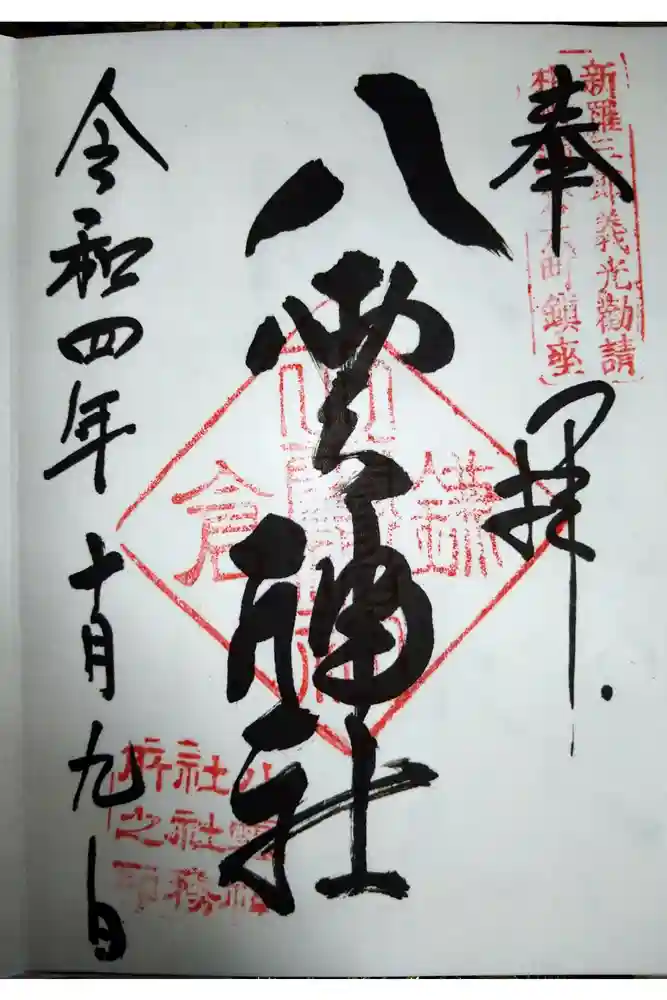 新羅三郎義光勧請
大町鎮座
奉拝
八雲神社
鎌倉
八雲神
社社務
所之印
令和四年十月九日